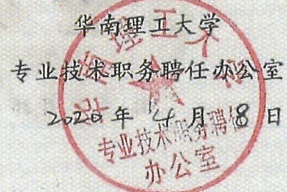 华南理工大学
专业技术职务聘任办公室
2020年4月8日
华南理工大学
专业技术职务聘任
办公室